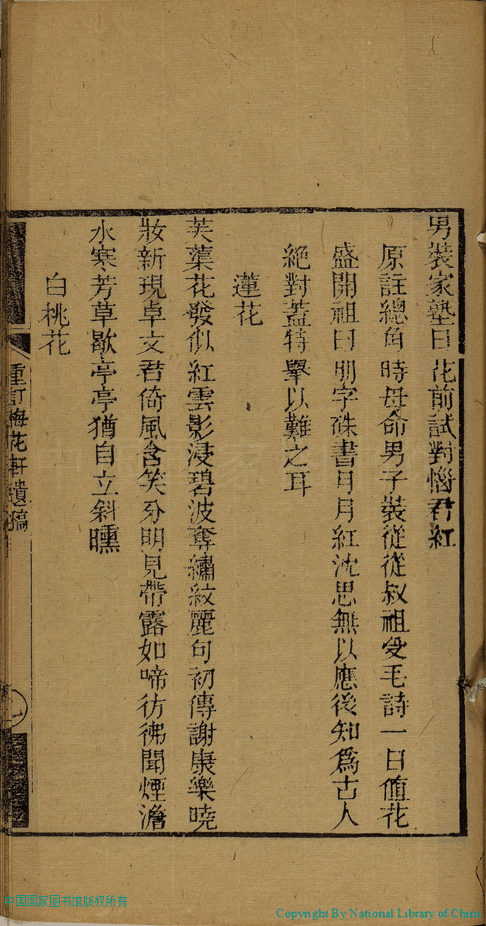 男裝家塾日花前試對惱君紅
原註總角時母命男子裝從從叔祖受毛詩一日值花
盛開祖曰明字硃書月月紅沈思無以應後知爲古人
絕對葢特舉以難之耳
蓮花
芙蕖花發似紅雲影浸碧波奪繡紋麗句初傳謝康樂曉
妝新現卓文君倚風含笑分明見帶露如啼彷彿聞煙澹
水寒芳草歇亭亭猶自立斜曛
白桃花
重訂梅花軒遺稿
一
中国国家图书馆版权所有
Copyright By National Library of China